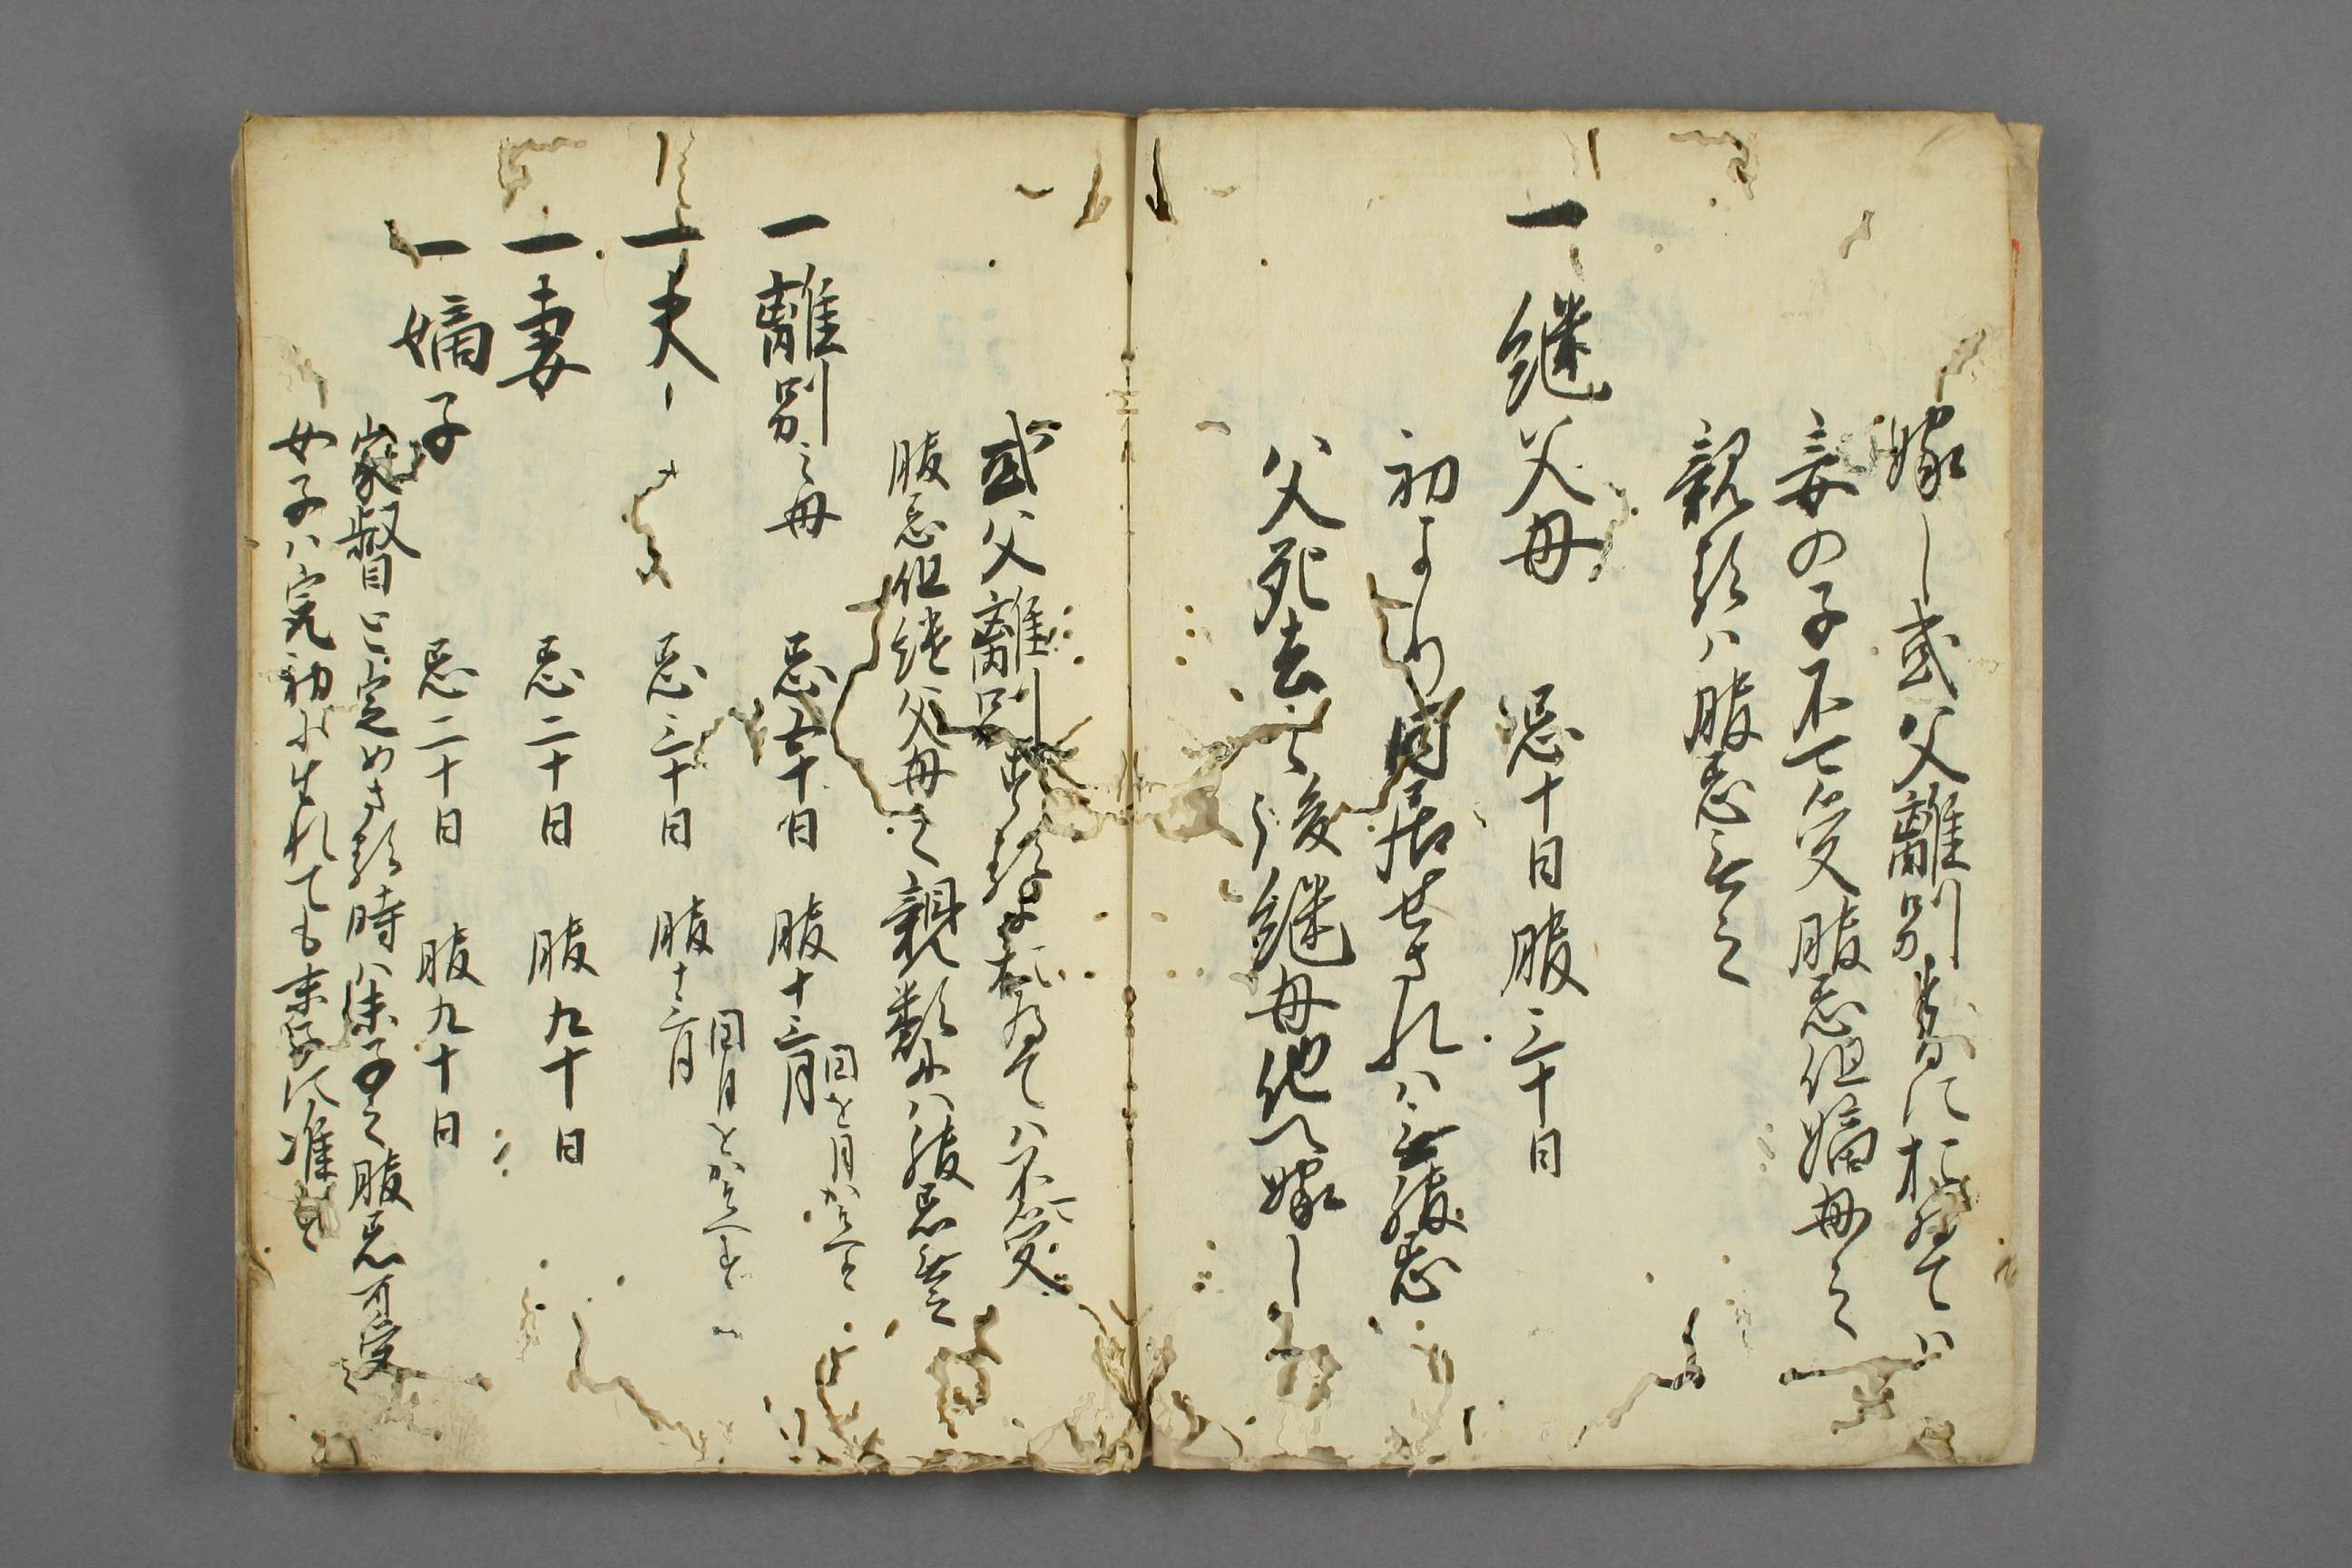 嫁し或父離別するに於てハ
妾の子不可受服忌但嫡母之
親類ハ服忌無之
一継父母　忌十日服三十日
初より同居せされハ無服忌
父死去之後継母他へ嫁し
或父離別するに於てハ不可受
服忌但継父母之親類ハ服忌無之
一離別之母　忌五十日　服十三月
閏月をかそへす
一夫　忌三十日　服十三月
閏月をかそへす
一妻　忌二十日　服九十日
一嫡子　忌二十日　服九十日
家督と定めさる時ハ末子之服忌可受
女子ハ最初に生れても末子に准す